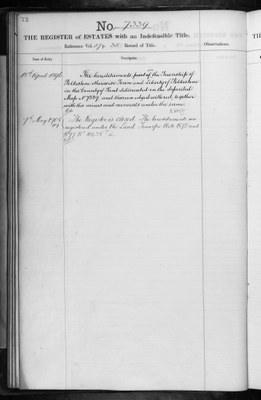 No. 7339
THE REGISTER of ESTATES with an Indefeasible Title.
Reference Vol. Record of Title.
Observations.
Date of Entry.
Description
18th April 1896
The hereditaments part of the Township of
Folkestone Town and Liberty of Folkestone
in the County of Kent delineated on the deposited
Map No 7339, and thereon edged with red, together
with the mines and minerals under the same.
7th May
The Register is closed. The hereditaments are
registered under the Land Transfer Acts 1875 and
1897